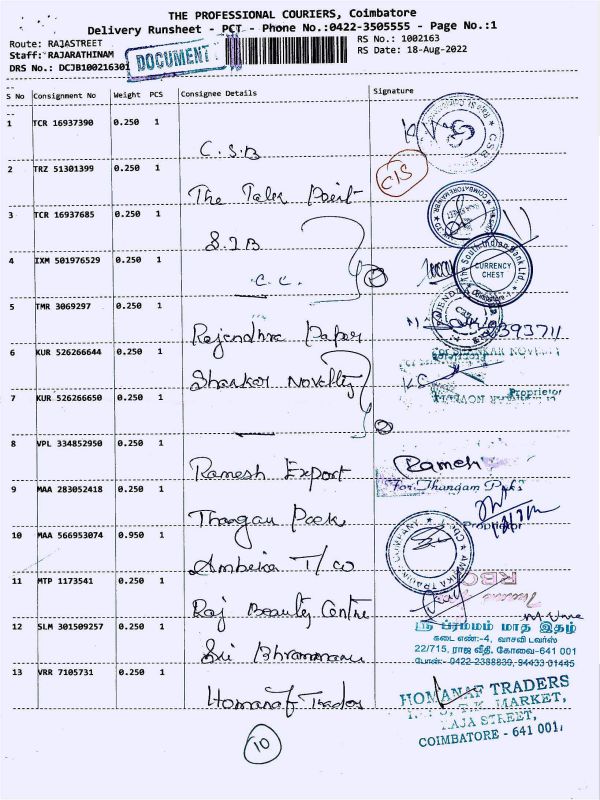 THE PROFESSIONAL COURIERS, Coimbatore
Delivery Runsheet - PCT - Phone No.:0422-3505555 - Page No.:1
Route: RAJASTREET
RS No.: 1002163
Staff: RAJARATHINAM
DOCUMENT
RS Date: 18-Aug-2022
DRS No.: DCJB100216301
S No Consignment No Weight PCS Consignee Details Signature
1 TCR 16937390 0.250 1
C.S.B
2 TRZ 51301399 0.250 1
CIS
The Talk Point
3 TCR 16937685 0.250 1
S.I.B
4 IXM 501976529 0.250 1
The South Indian Bank Ltd.
CURRENCY
CHEST
Coimbatore
C.C.
2
5 TMR 3069297 0.250 1
Rajendhra Paper
6 KUR 526266644 0.250 1
Shankar Novelty
7 KUR 526266650 0.250 1
Proprietor
2
8 VPL 334852950 0.250 1
Ramesh Export
Ramesh
9 MAA 283052418 0.250 1
For Thangam
Thangam Pack
Proprietor
10 MAA 566953074 0.950 1
Ambika T/Co
AMBIKA TRADING COMPANY
11 MTP 1173541 0.250 1
RBC
Raj Beauty Centre
12 SLM 301509257 0.250 1
ஸ்ரீ பிரம்மம் மாத இதழ்
கடை எண்:-4, வாசவி டவர்ஸ்
22/715, ராஜ வீதி, கோவை-641 001
போன்:- 0422-2388839, 94433 01445
Sri Bhrammam
13 VRR 7105731 0.250 1
Homanaf Trades
HOMANAF TRADERS
T.K. MARKET,
RAJA STREET,
COIMBATORE - 641 001
10